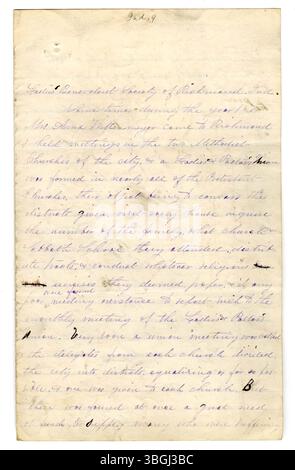 Ladies Benevolent Society of Richmond, Ind.
Some time during the year
Mrs. Anna came to Richmond
& held meetings in the two Methodist
Churches of the city, & a Ladies
was formed in nearly all of the
Churches, their object being to canvass the
districts given, visit every house, inquire
the number of the family, what church &
Sabbath School they attended, distrib
ute tracts, & conduct whatever religious
services they deemed proper, & if any
poor, needing assistance to report such to the
monthly meeting of the Ladies
Union. a union meeting was called
the delegates from each church divided
the city into districts, equalizing as far as pos
sible, & one was given to each church. But
there was found at once a great need
of to supply many who were suffering